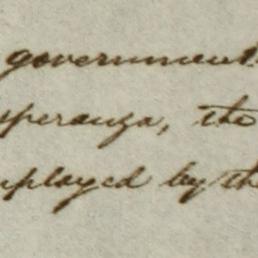 government
speranza, the
mployed by the